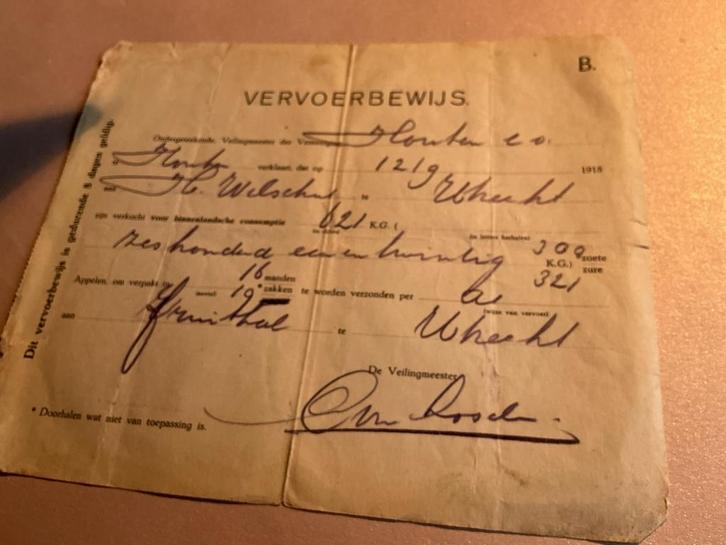 B.
VERVOERBEWIJS.
Ondergeteekende, Veilingmeester der Houten e o.
Houten verklaart, dat op 12/9 1918
aan H. te Utrecht
zijn verkocht voor binnenlandsche consumptie 621 K.G. (in letters herhalen) 300 zoete
zes honderd een en twintig K.G.) 321 zure
Appelen, om verpakt in 16 manden
aantal 19 * zakken te worden verzonden per (wijze van vervoer)
aan Fruithal te Utrecht
De Veilingmeester,
* Doorhalen wat niet van toepassing is.
Dit vervoerbewijs is gedurende 8 dagen geldig.